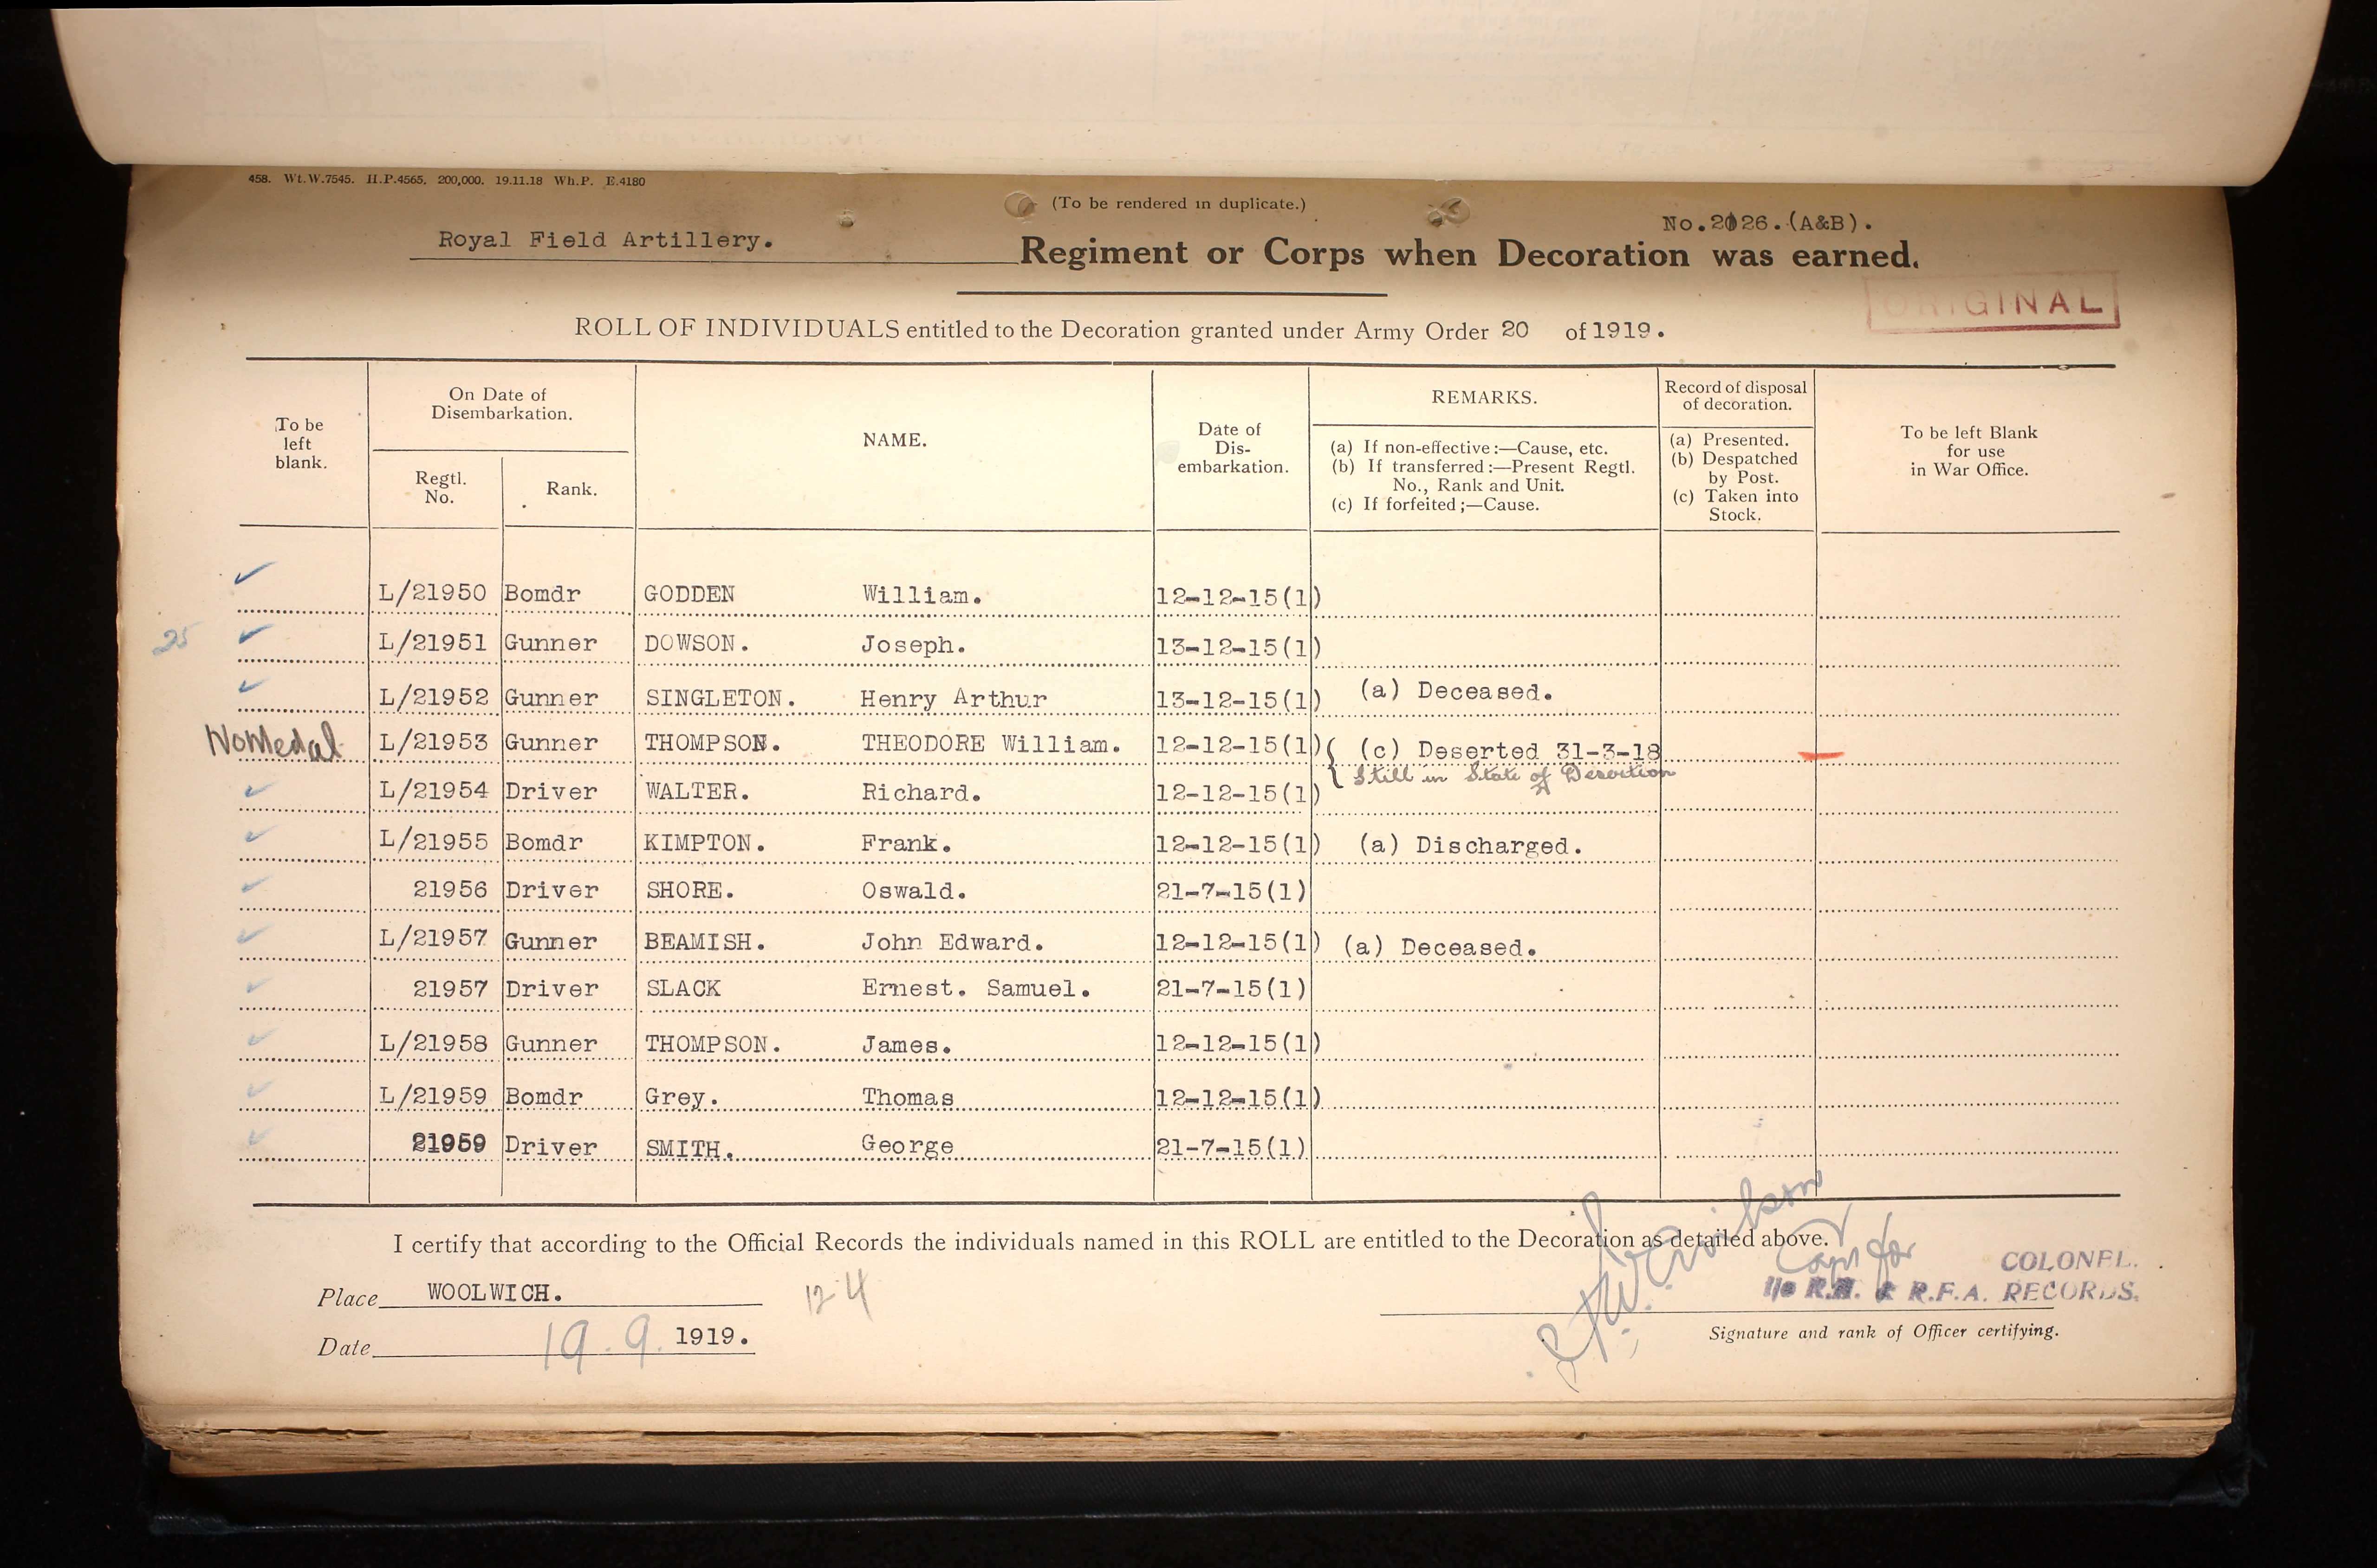 458. Wt.W.7545. H.P.4565. 200,000. 19.11.18 Wh.P. E.4180
(To be rendered in duplicate.)
No.2026.(A&B).
Royal Field Artillery. Regiment or Corps when Decoration was earned.
ORIGINAL
ROLL OF INDIVIDUALS entitled to the Decoration granted under Army Order 20 of 1919.
To be left blank.
On Date of Disembarkation.
Regtl. No.
Rank.
NAME.
Date of Dis-embarkation.
REMARKS.
(a) If non-effective:—Cause, etc.
(b) If transferred:—Present Regtl. No., Rank and Unit.
(c) If forfeited;—Cause.
Record of disposal of decoration.
(a) Presented.
(b) Despatched by Post.
(c) Taken into Stock.
To be left Blank for use in War Office.
L/21950 Bomdr GODDEN William. 12-12-15(1)
25 L/21951 Gunner DOWSON. Joseph. 13-12-15(1)
L/21952 Gunner SINGLETON. Henry Arthur 13-12-15(1) (a) Deceased.
No Medal L/21953 Gunner THOMPSON. THEODORE William. 12-12-15(1) (c) Deserted 31-3-18
Still in State of Desertion
L/21954 Driver WALTER. Richard. 12-12-15(1)
L/21955 Bomdr KIMPTON. Frank. 12-12-15(1) (a) Discharged.
21956 Driver SHORE. Oswald. 21-7-15(1)
L/21957 Gunner BEAMISH. John Edward. 12-12-15(1) (a) Deceased.
21957 Driver SLACK Ernest. Samuel. 21-7-15(1)
L/21958 Gunner THOMPSON. James. 12-12-15(1)
L/21959 Bomdr Grey. Thomas 12-12-15(1)
21959 Driver SMITH. George 21-7-15(1)
I certify that according to the Official Records the individuals named in this ROLL are entitled to the Decoration as detailed above.
Capt for COLONEL.
I/c R.H. & R.F.A. RECORDS.
Place WOOLWICH.
124
Signature and rank of Officer certifying.
Date 19.9.1919.